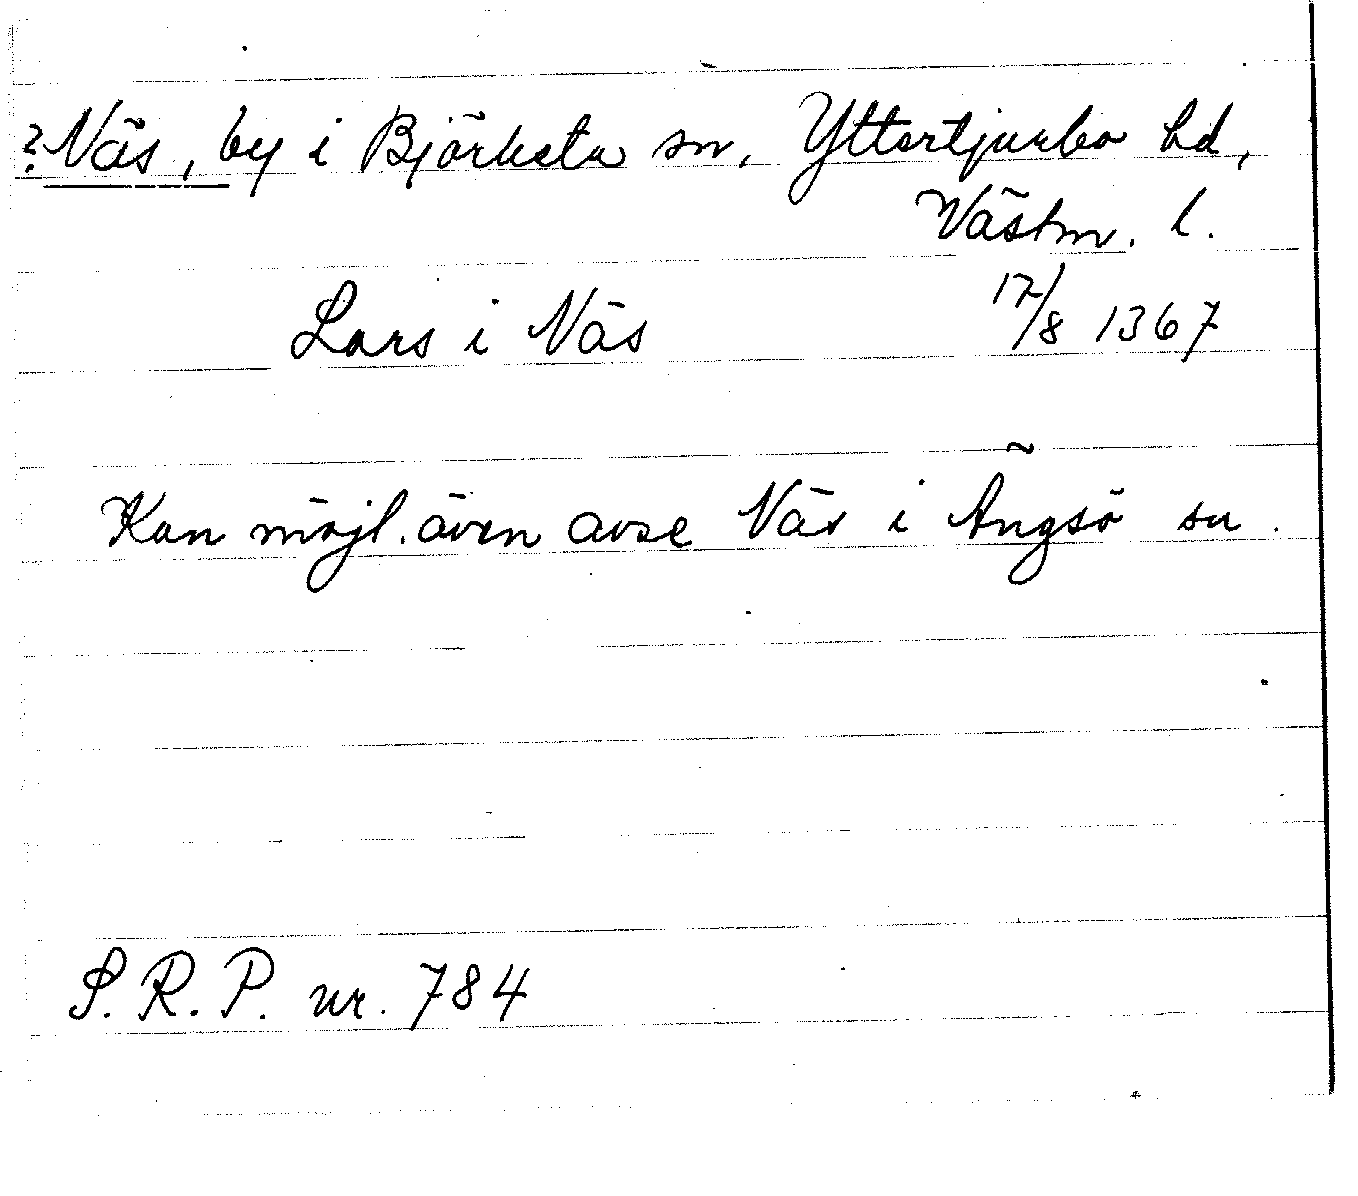 ? Näs, by i Björksta sn, Yttertjurbo hd,
Västm. l.
Lars i Näs 17/8 1367
Kan möjl. även avse Näs i Ängsö sn.
S.R.P. nr. 784